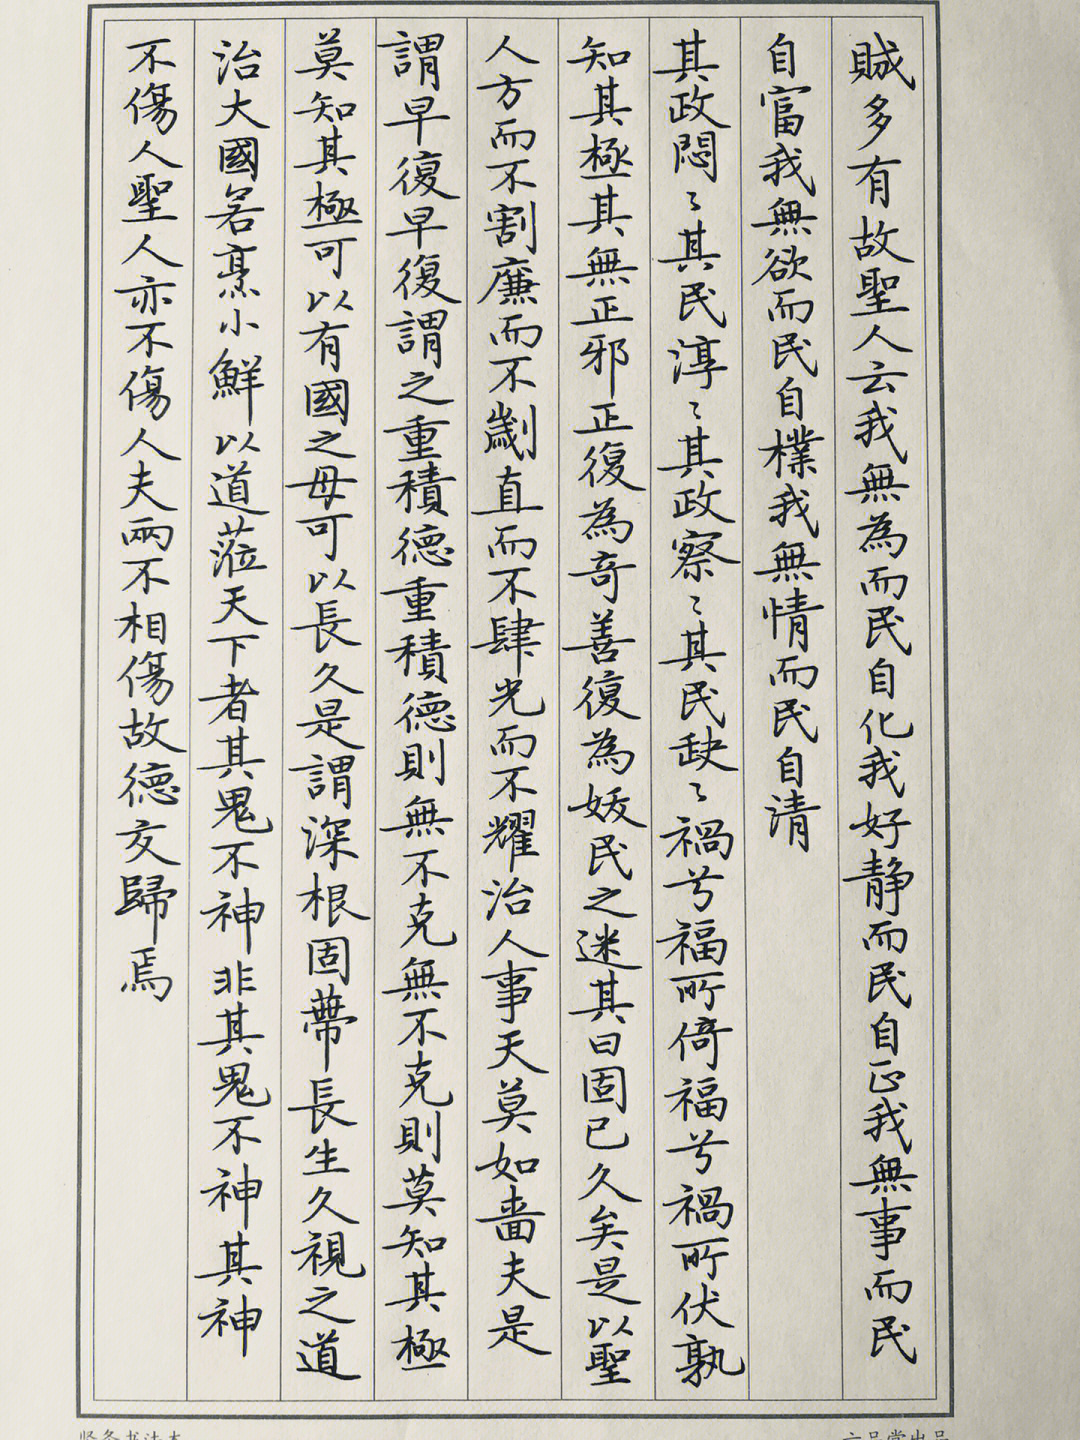 賊多有故聖人云我無為而民自化我好靜而民自正我無事而民
自富我無欲而民自樸我無情而民自清
其政悶〻其民淳〻其政察〻其民缺〻禍兮福所倚福兮禍所伏孰
知其極其無正邪正復為奇善復為妖民之迷其日固已久矣是以聖
人方而不割廉而不劌直而不肆光而不耀治人事天莫如嗇夫是
謂早復早復謂之重積德重積德則無不克無不克則莫知其極
莫知其極可以有國之母可以長久是謂深根固蔕長生久視之道
治大國若烹小鮮以道蒞天下者其鬼不神非其鬼不神其神
不傷人聖人亦不傷人夫兩不相傷故德交歸焉
竖条书法本
六品堂出品